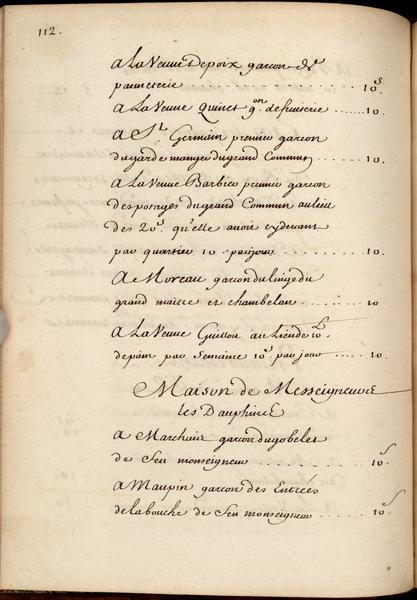 112.
A La Veuve Depoix garcon de
panneterie ........ 10.s
A La Veuve Quinct g.on defruiterie ...... 10
A S.t Germain premier garcon
du garde manger du grand Commun ...... 10.
A La Veuve Barbier premier garcon
des potages du grand Commun au lieu
des 20.s qu'elle avoit cydevant
par quartier 10 par jour ........ 10.
A Moreau garcon du linge du
grand maitre et chambelan ........ 10
A La Veuve Guillou au lieu de 10.l
de pain par Semaine 10.s par jour ...... 10
Maison de Messeigneurs
les Dauphins
A Marchais garcon du gobelet
de feu monseigneur ........ 10.s
A Maupin garcon des Entrées
de la bouche de feu monseigneur ...... 10.s